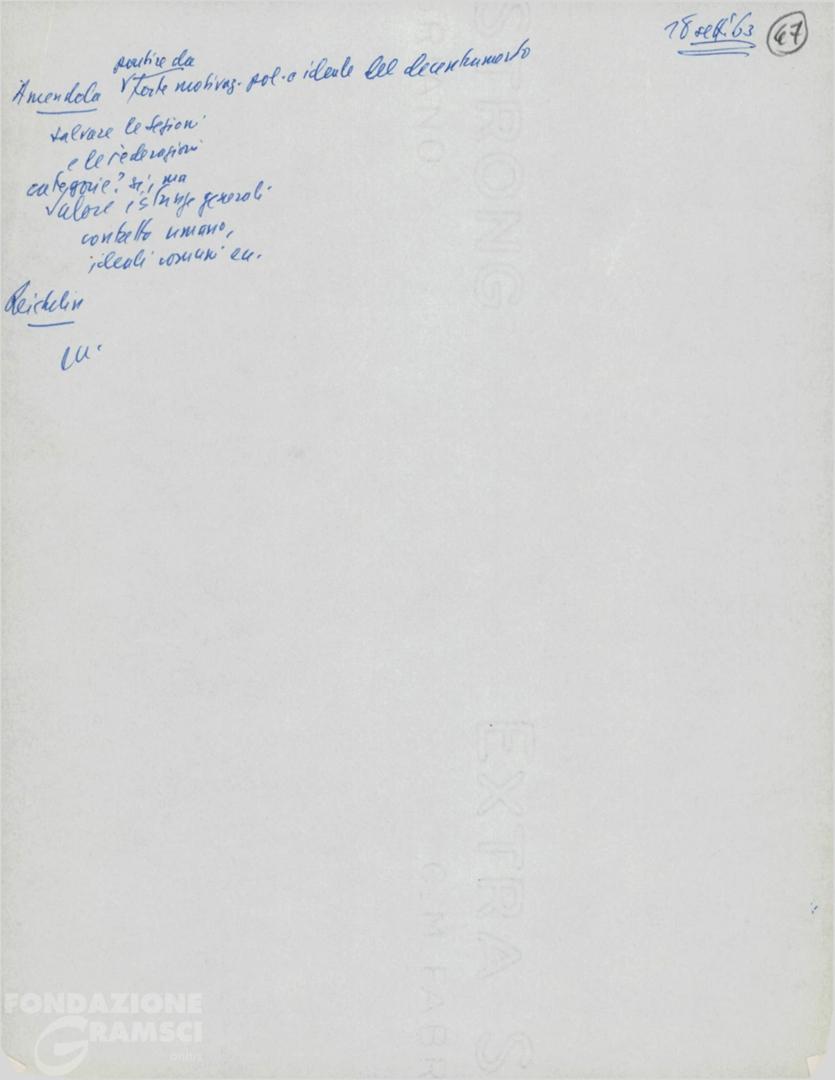 18 sett. '63
47
partire da
Amendola √ forte motivaz. pol. e ideale del decentramento
salvare le sezioni
e le federazioni
categorie? sì, ma
valore istanze generali
contatto umano,
ideali comuni
Reichlin
STRONG
EXTRA S
FABR
FONDAZIONE
GRAMSCI
onlus